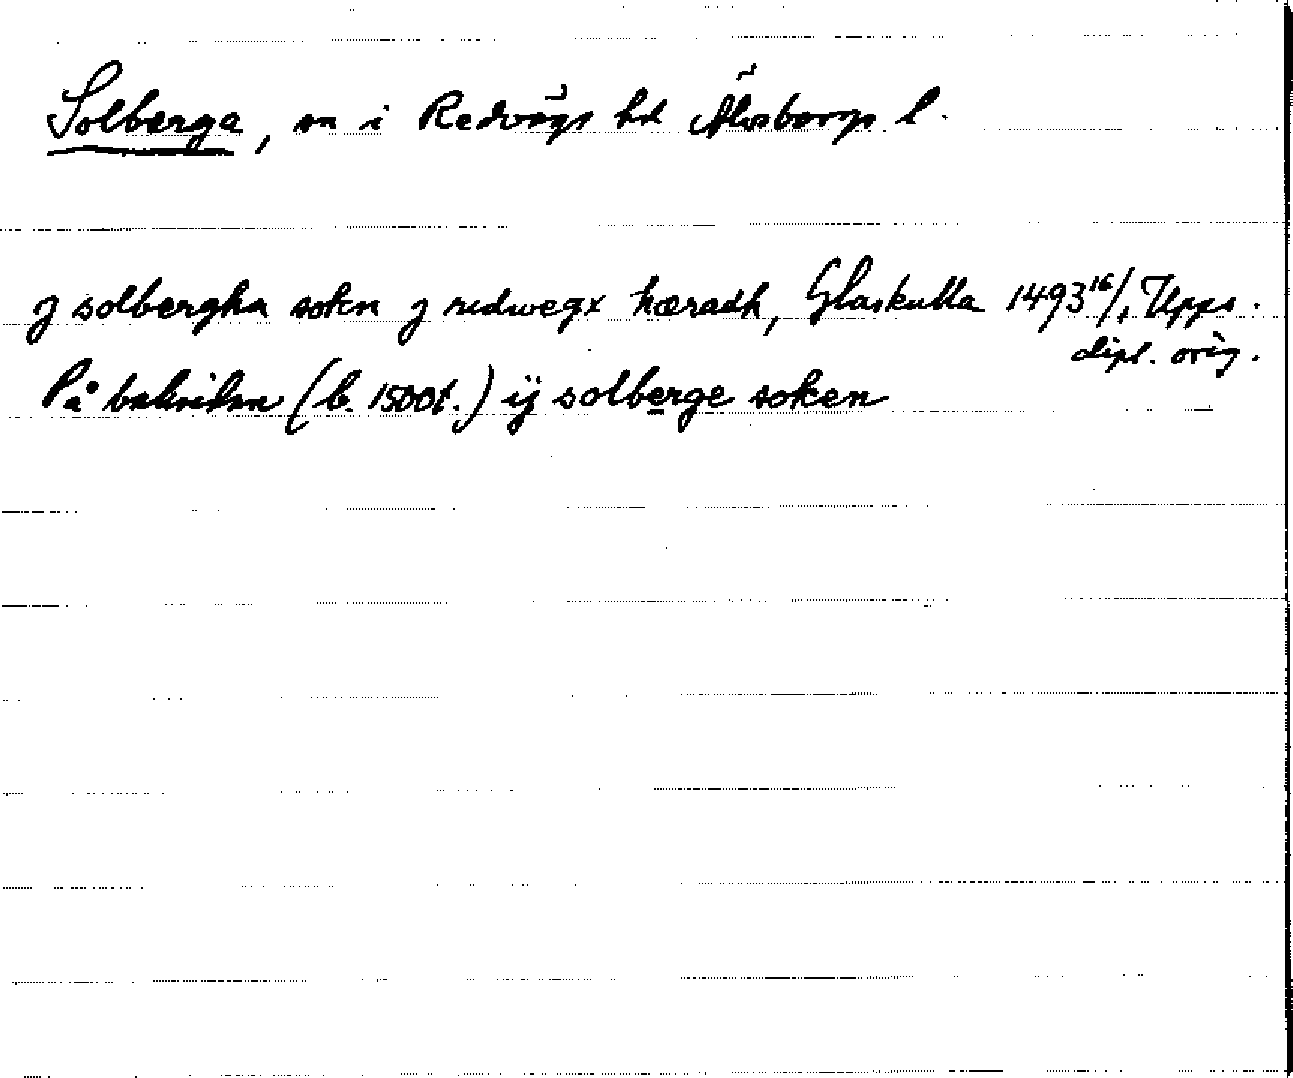 Solberga, sn i Redvägs hd Älvsborgs l.
j solbergha sokn j redwegx hæradh, Glaskulla 1493 16/1 Upps.
dipl. orig.
På baksidan (b. 1500t.) ij solberge soken